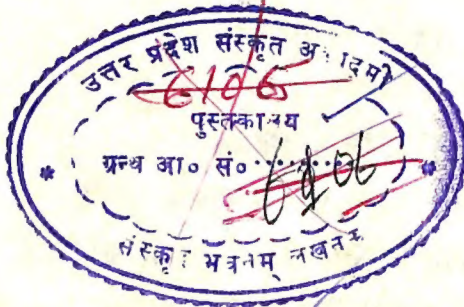 उत्तर प्रदेश संस्कृत अादमी
6106
पुस्तकालय
ग्रन्थ आ० सं०
संस्कृत भवनम् लखनऊ